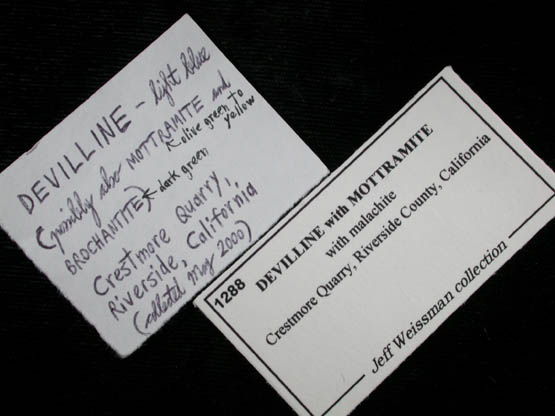 DEVILLINE - light blue
(possibly also MOTTRAMITE and
olive green to
yellow
BROCHANTITE) dark green
Crestmore Quarry,
Riverside, California
(collected May 2000)
1288
DEVILLINE with MOTTRAMITE
with malachite
Crestmore Quarry, Riverside County, California
Jeff Weissman collection